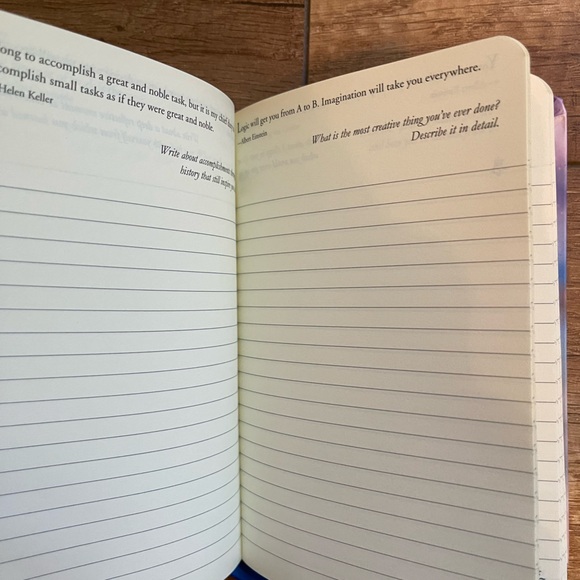 ong to accomplish a great and noble task, but it is my chief
complish small tasks as if they were great and noble.
Helen Keller
Write about accomplishments
history that still inspire
Logic will get you from A to B. Imagination will take you everywhere.
—Albert Einstein
What is the most creative thing you've ever done?
Describe it in detail.